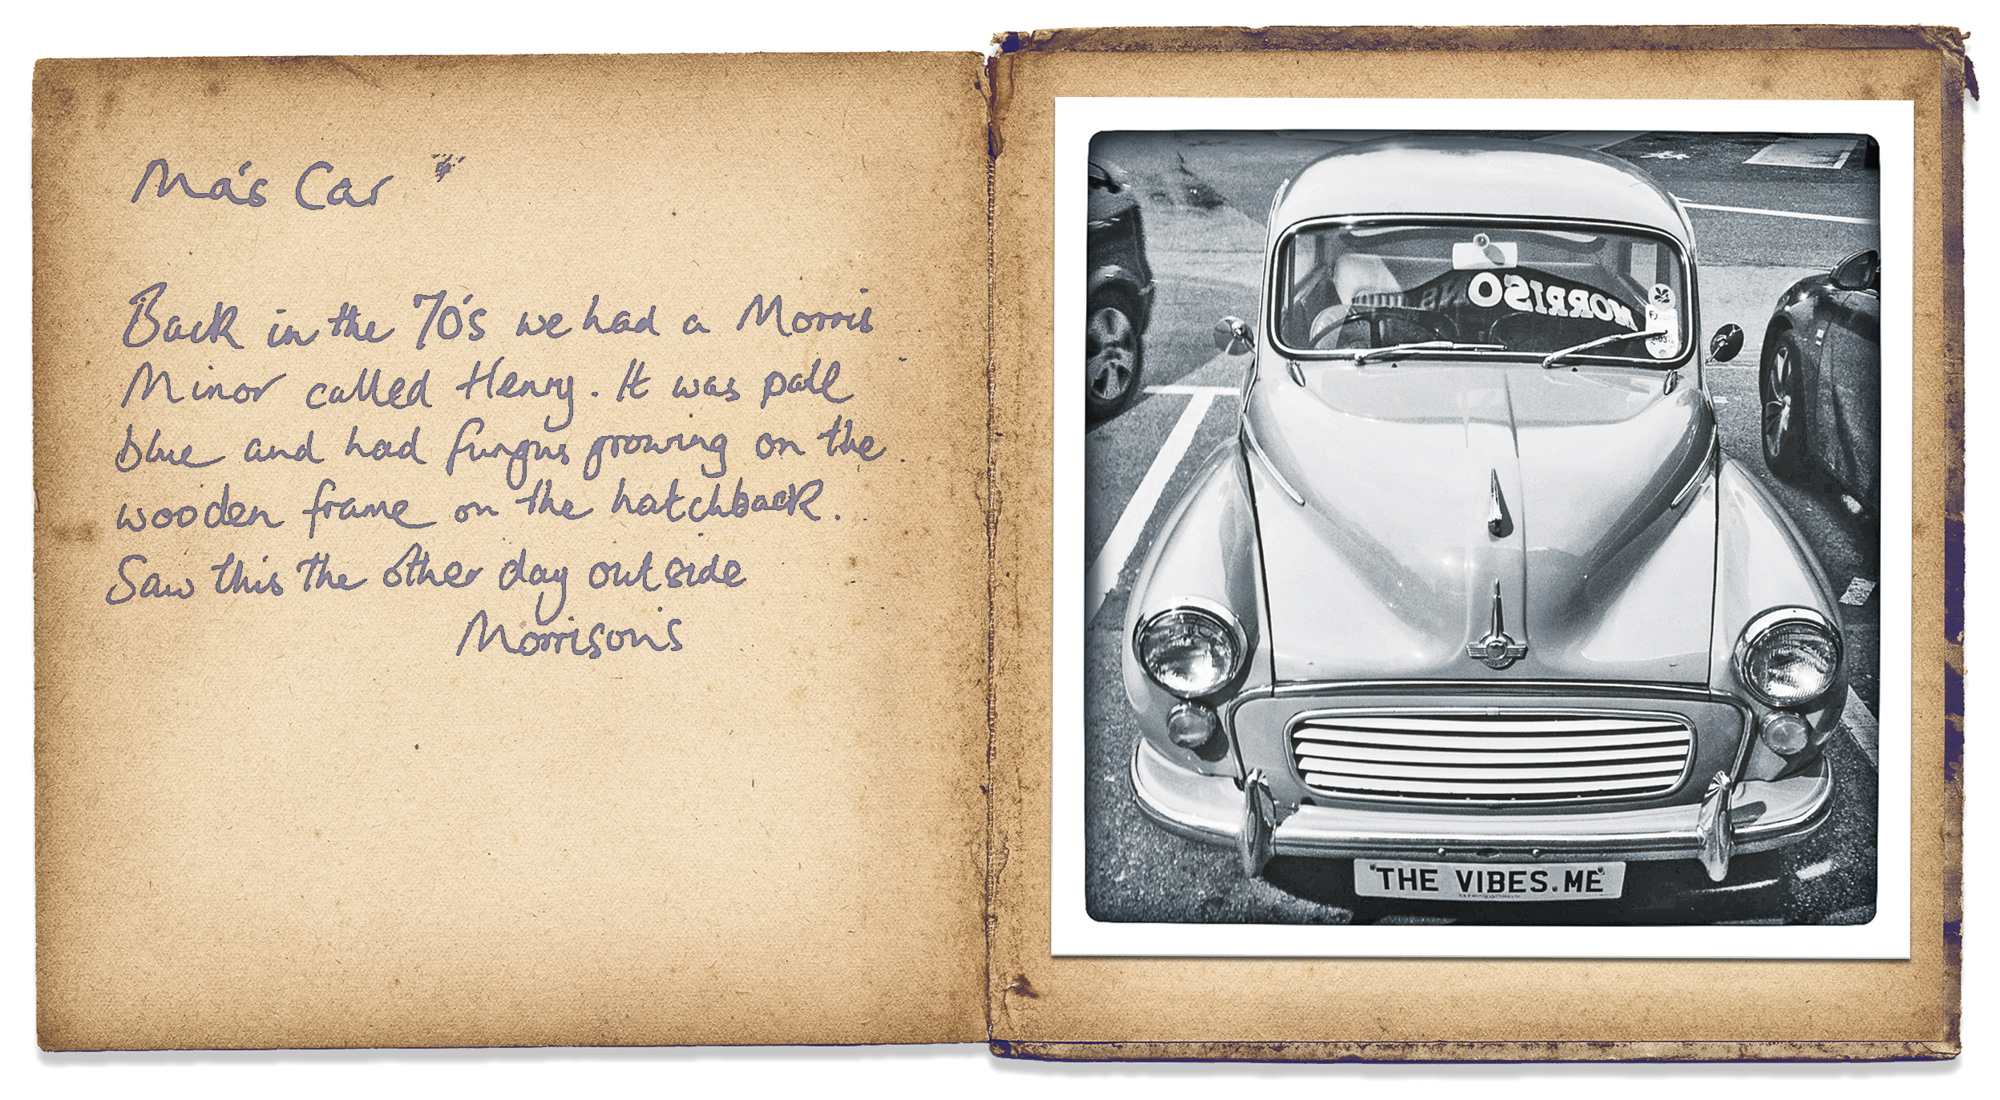 Ma's Car
Back in the 70's we had a Morris
Minor called Henry. It was pale
blue and had fungus growing on the
wooden frame on the hatchback.
Saw this the other day outside
Morrisons
MORRISO
THE VIBES.ME